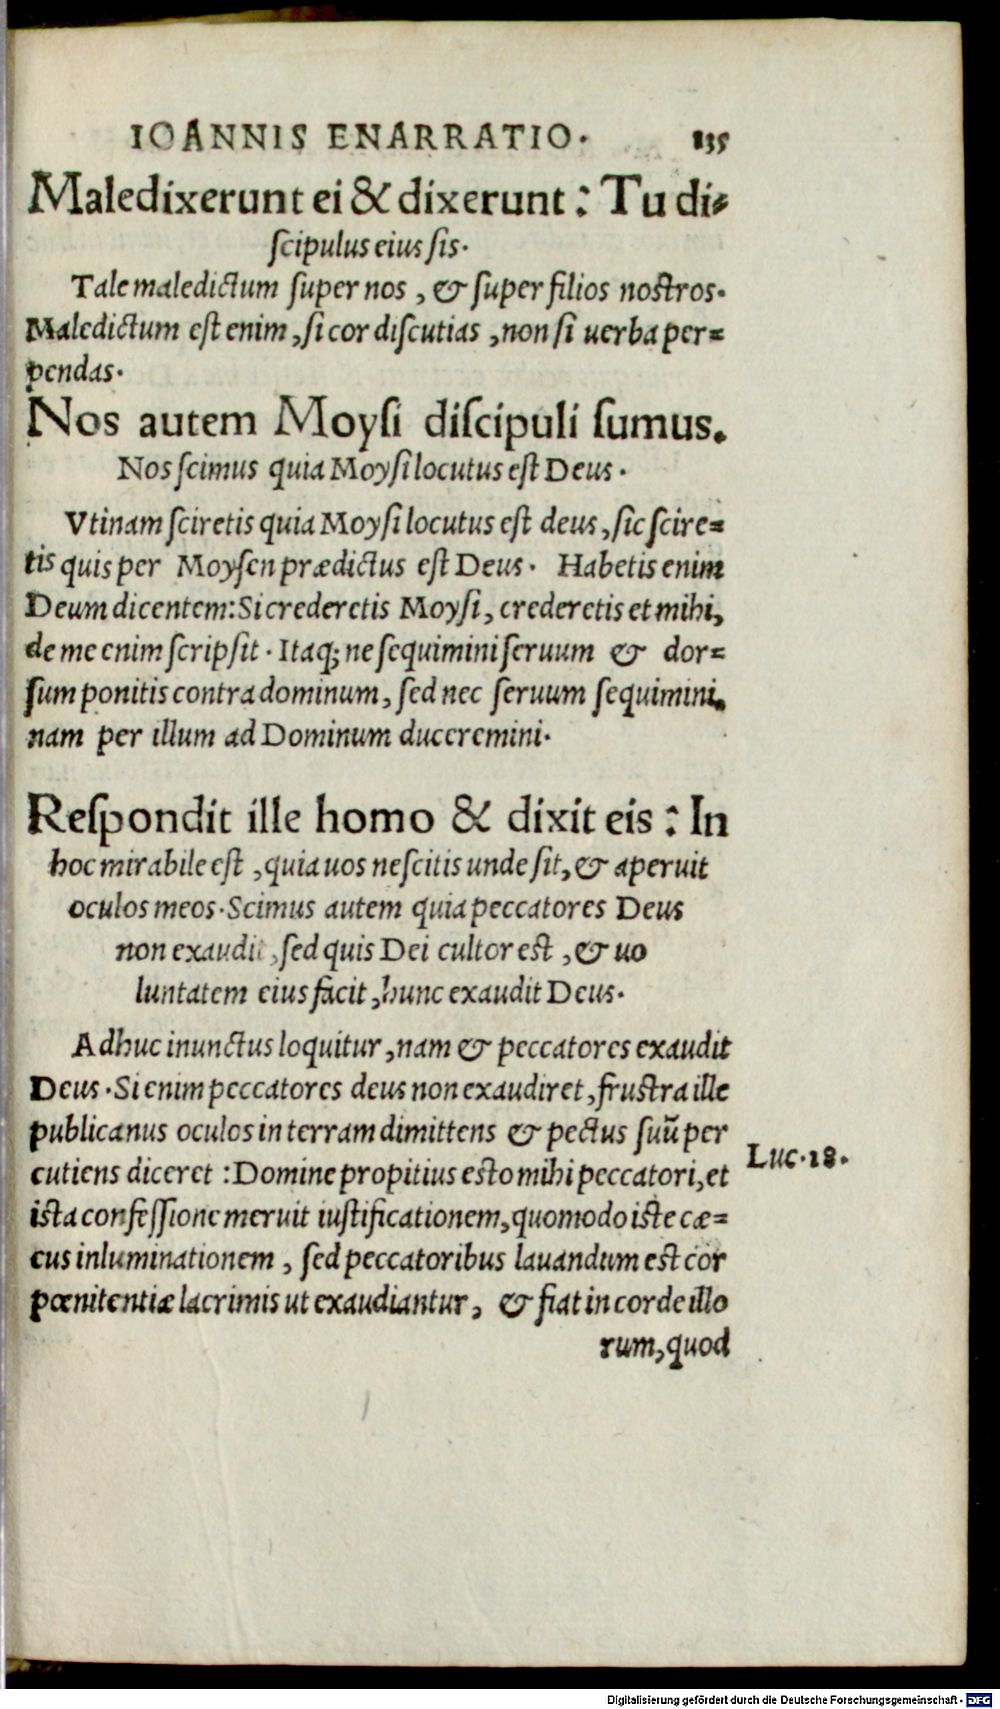 IOANNIS ENARRATIO. 135
Maledixerunt ei & dixerunt : Tu di-
ſcipulus eius ſis.
Tale maledictum ſuper nos , & ſuper filios noſtros.
Maledictum eſt enim , ſi cor diſcutias , non ſi uerba per=
pendas.
Nos autem Moyſi diſcipuli ſumus.
Nos ſcimus quia Moyſi locutus eſt Deus .
Vtinam ſciretis quia Moyſi locutus eſt deus , ſic ſcire=
tis quis per Moyſen prædictus eſt Deus . Habetis enim
Deum dicentem: Si crederetis Moyſi , crederetis et mihi,
de me enim ſcripſit . Itaq; ne ſequimini ſeruum & dor=
ſum ponitis contra dominum , ſed nec ſeruum ſequimini,
nam per illum ad Dominum duceremini.
Reſpondit ille homo & dixit eis : In
hoc mirabile eſt , quia uos neſcitis unde ſit, & aperuit
oculos meos . Scimus autem quia peccatores Deus
non exaudit , ſed quis Dei cultor eſt , & uo
luntatem eius facit , hunc exaudit Deus.
Adhuc inunctus loquitur , nam & peccatores exaudit
Deus . Si enim peccatores deus non exaudiret , fruſtra ille
publicanus oculos in terram dimittens & pectus ſuũ per
cutiens diceret : Domine propitius eſto mihi peccatori, et
iſta confeſſione meruit iuſtificationem, quomodo iſte cæ=
cus inluminationem , ſed peccatoribus lauandum eſt cor
pœnitentiæ lacrimis ut exaudiantur , & fiat in corde illo
rum, quod
Luc. 18.
Digitalisierung gefördert durch die Deutsche Forschungsgemeinschaft - DFG